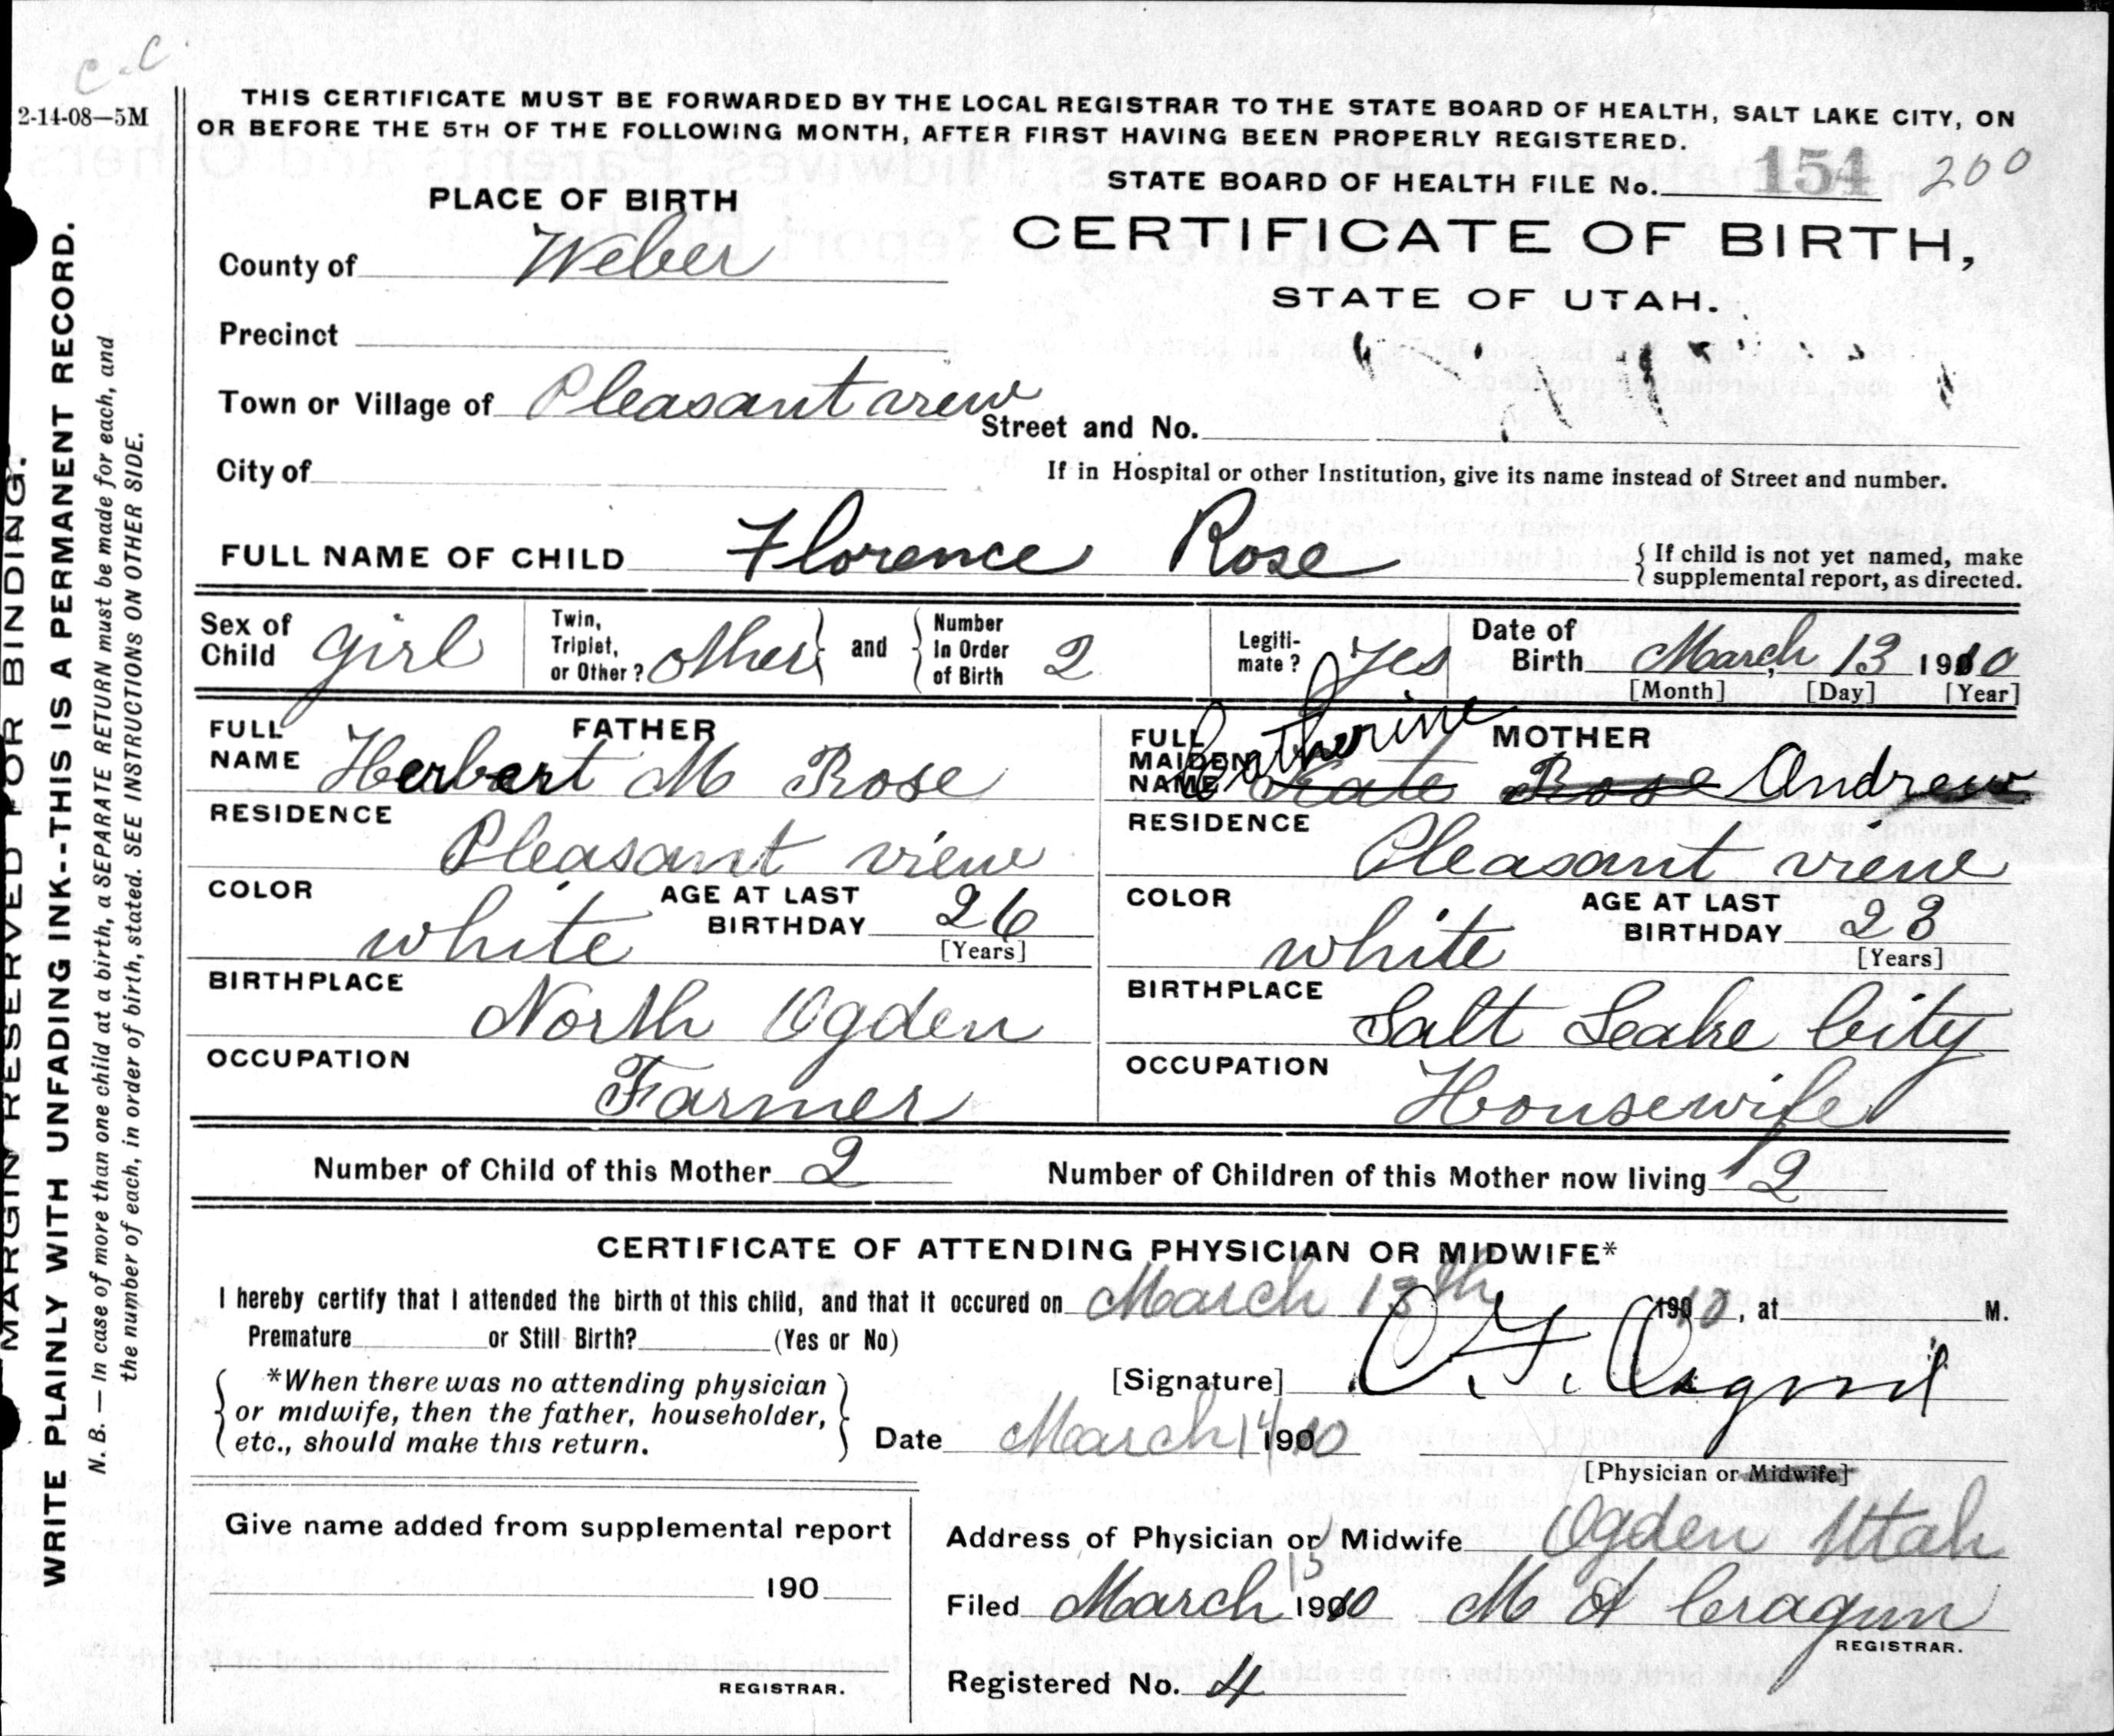 C.C.
2-14-08—5M
THIS CERTIFICATE MUST BE FORWARDED BY THE LOCAL REGISTRAR TO THE STATE BOARD OF HEALTH, SALT LAKE CITY, ON
OR BEFORE THE 5TH OF THE FOLLOWING MONTH, AFTER FIRST HAVING BEEN PROPERLY REGISTERED.
STATE BOARD OF HEALTH FILE No. 154 200
PLACE OF BIRTH
CERTIFICATE OF BIRTH,
STATE OF UTAH.
County of Weber
Precinct
Town or Village of Pleasant view
Street and No.
City of
If in Hospital or other Institution, give its name instead of Street and number.
FULL NAME OF CHILD Florence Rose
{ If child is not yet named, make
supplemental report, as directed.
Sex of Child girl
Twin, Triplet, or Other? other } and { Number In Order of Birth 2
Legiti-mate? yes
Date of Birth March 13 1910
[Month] [Day] [Year]
FATHER
FULL NAME Herbert M Rose
RESIDENCE
Pleasant view
COLOR white
AGE AT LAST BIRTHDAY 26
[Years]
BIRTHPLACE
North Ogden
OCCUPATION
Farmer
MOTHER
FULL MAIDEN NAME Catherine Kate Rose Andrew
RESIDENCE
Pleasant view
COLOR white
AGE AT LAST BIRTHDAY 23
[Years]
BIRTHPLACE
Salt Leake City
OCCUPATION
Housewife
Number of Child of this Mother 2 Number of Children of this Mother now living 2
CERTIFICATE OF ATTENDING PHYSICIAN OR MIDWIFE*
I hereby certify that I attended the birth of this child, and that it occured on March 13th 19010, at M.
Premature or Still Birth? (Yes or No)
{ *When there was no attending physician
or midwife, then the father, householder,
etc., should make this return. }
[Signature]
Date March 14 19010
[Physician or Midwife]
Give name added from supplemental report
190
REGISTRAR.
Address of Physician or Midwife Ogden Utah
Filed March 15 1910 M A Cragun
REGISTRAR.
Registered No. 4
MARGIN RESERVED FOR BINDING.
WRITE PLAINLY WITH UNFADING INK--THIS IS A PERMANENT RECORD.
N. B. — In case of more than one child at a birth, a SEPARATE RETURN must be made for each, and
the number of each, in order of birth, stated. SEE INSTRUCTIONS ON OTHER SIDE.